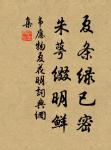 夏条绿已密
朱萼缀明鲜
韦应物夏花明词典网
集